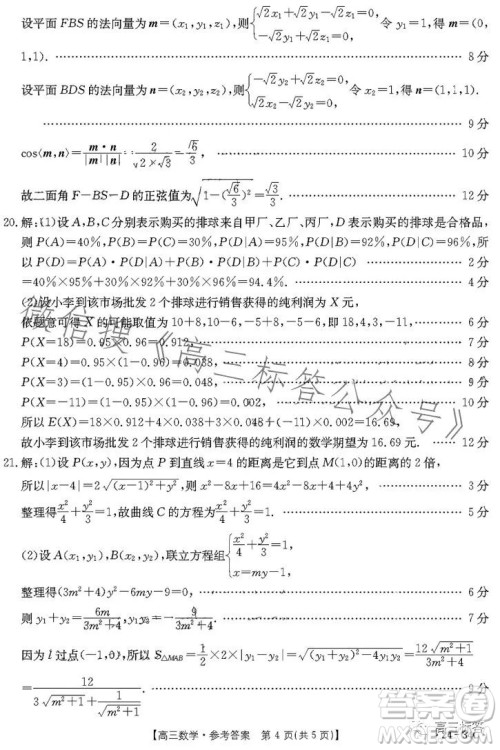 设平面 FBS 的法向量为 m=(x₁,y₁,z₁),则{√2x₁+√2y₁-√2z₁=0, -√2y₁+√2z₁=0, 令 y₁=1,得 m=(0,
1,1). …… 8分
设平面 BDS 的法向量为 n=(x₂,y₂,z₂),则{-√2y₂+√2z₂=0, √2x₂-√2z₂=0, 令 x₂=1,得 n=(1,1,1).
…… 9分
cos⟨m,n⟩=m·n/|m||n|=2/(√2×√3)=√6/3, …… 10分
故二面角 F-BS-D 的正弦值为√(1-(√6/3)²)=√3/3. …… 12分
20. 解:(1)设 A,B,C 分别表示购买的排球来自甲厂、乙厂、丙厂,D 表示购买到的排球是合格品,
则 P(A)=40%,P(B)=P(C)=30%,P(D|A)=95%,P(D|B)=92%,P(D|C)=96%,所
以 P(D)=P(A)·P(D|A)+P(B)·P(D|B)+P(C)·P(D|C) …… 2分
=40%×95%+30%×92%+30%×96%=94.4%. …… 4分
(2)设小李到该市场批发 2 个排球进行销售获得的纯利润为 X 元,
依题意可得 X 的可能取值为 10+8,10-6,-5+8,-5-6,即 18,4,3,-11, …… 6分
P(X=18)=0.95×0.96=0.912, …… 7分
P(X=4)=0.95×(1-0.96)=0.038, …… 8分
P(X=3)=(1-0.95)×0.96=0.048, …… 9分
P(X=-11)=(1-0.95)×(1-0.96)=0.002, …… 10分
所以 E(X)=18×0.912+4×0.038+3×0.048+(-11)×0.002=16.69,
故小李到该市场批发 2 个排球进行销售获得的纯利润的数学期望为 16.69 元. …… 12分
21. 解:(1)设 P(x,y),因为点 P 到直线 x=4 的距离是它到点 M(1,0)的距离的 2 倍,
所以|x-4|=2√((x-1)²+y²),则 x²-8x+16=4x²-8x+4+4y², …… 3分
整理得 x²/4+y²/3=1,故曲线 C 的方程为 x²/4+y²/3=1. …… 5分
(2)设 A(x₁,y₁),B(x₂,y₂),联立方程组{x²/4+y²/3=1, x=my-1,
整理得(3m²+4)y²-6my-9=0, …… 6分
则 y₁+y₂=6m/(3m²+4),y₁y₂=-9/(3m²+4). …… 7分
因为 l 过点(-1,0),所以 S△MAB=1/2×2×|y₁-y₂|=√((y₁+y₂)²-4y₁y₂)=12√(m²+1)/(3m²+4)
=12/(3√(m²+1)+1/√(m²+1)). …… 9分
【高三数学·参考答案 第 4 页(共 5 页)】
微信搜《高三标答公众号》